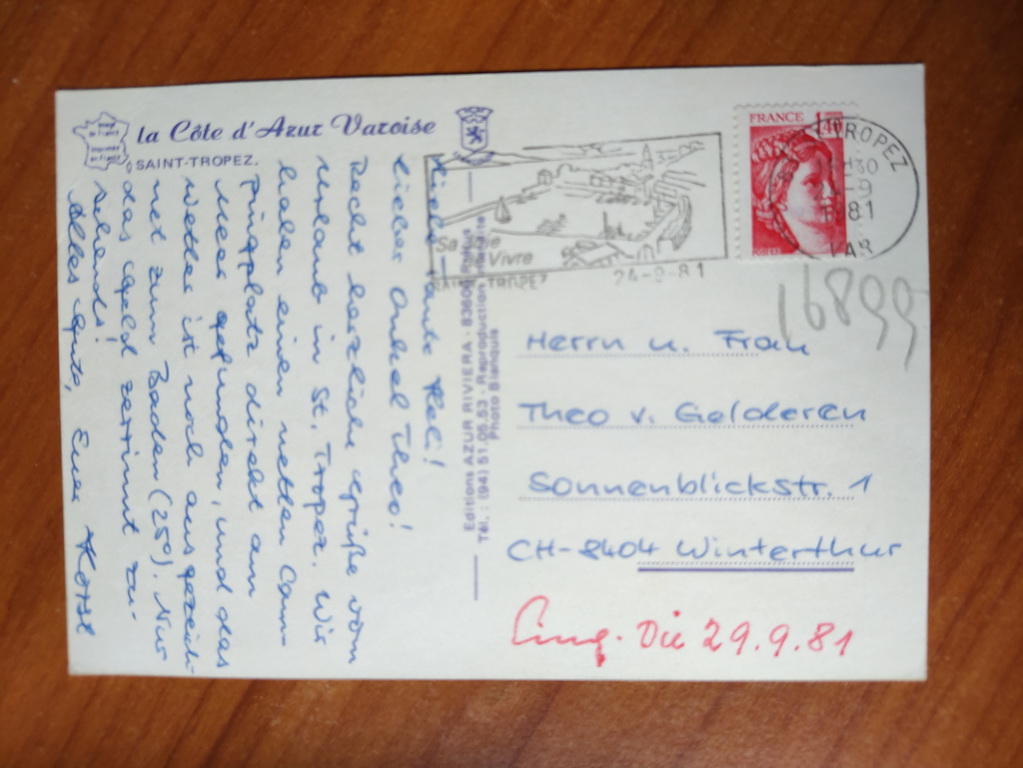 la Côte d'Azur Varoise
SAINT-TROPEZ.
Liebe Tante Heli!
Lieber Onkel Theo!
Recht herzliche Grüße vom
Urlaub in St. Tropez. Wir
haben einen netten Cam-
pingplatz direkt am
Meer gefunden, und das
Wetter ist noch ausgezeich-
net zum Baden (25°). Nur
das Geld zerrinnt zu-
sehends!
Alles Gute, Euer Horst
Editions AZUR RIVIERA - 8360
Tél. : (94) 51.05.53 - Reproduction interdite
Photo Blanquis
FRANCE
1,40
TROPEZ
30
-9
1981
VAR
Vivre
SAINT-TROPEZ
24-9-81
16899
Herrn u. Frau
Theo v. Gelderen
Sonnenblickstr. 1
CH-8404 Winterthur
Eing. Die 29.9.81